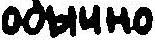 обычно